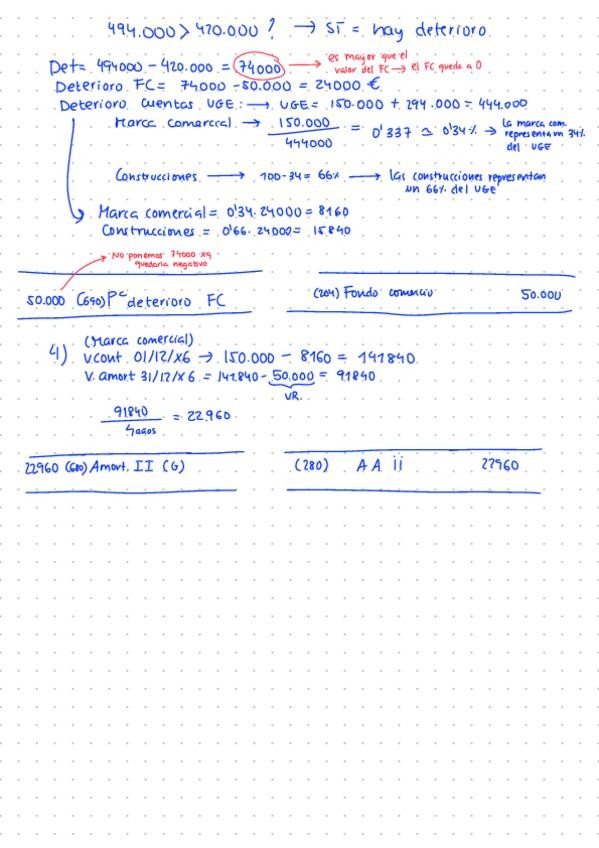 494.000 > 420.000 ? → SI = hay deterioro
Det = 494000 - 420.000 = 74000 → es mayor que el valor del FC → el FC queda a 0
Deterioro FC = 74000 - 50.000 = 24000 €
Deterioro cuentas UGE: → UGE = 150.000 + 294.000 = 444.000
Marca comercial → 150.000 / 444000 = 0'337 ≃ 0'34% → la marca com. representa un 34% del UGE
Construcciones → 100-34 = 66% → las construcciones representan un 66% del UGE
Marca comercial = 0'34 · 24000 = 8160
Construcciones = 0'66 · 24000 = 15840
No ponemos 74000 xq quedaria negativo
50.000 (690) Pc deterioro FC (204) Fondo comercio 50.000
4) (Marca comercial)
V.cont 01/12/X6 → 150.000 - 8160 = 141840
V. amort 31/12/X6 = 141.840 - 50.000 = 91840
VR.
91840 / 4 años = 22.960
22960 (680) Amort. II (G) (280) AA ii 22960